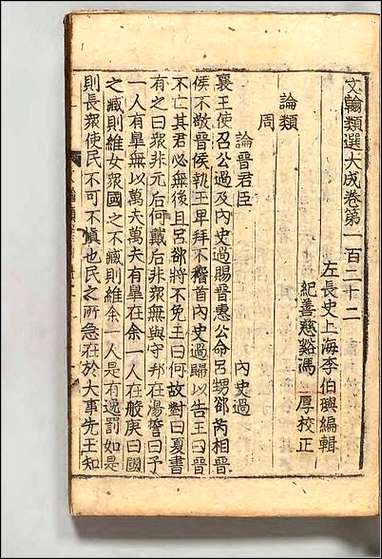 文翰類選大成卷第一百二十二
左長史上海李伯璵編輯
紀善慈谿馮厚校正
論類
周
論晉君臣 內史過
襄王使召公過及內史過賜晉惠公命呂甥郤芮相晉
侯不敬晉侯執玉卑拜不稽首內史過歸以告王曰晉
不亡其君必無後且呂郤將不免王曰何故對曰夏書
有之曰衆非元后何戴后非衆無與守邦在湯誓曰予
一人有辠無以萬夫萬夫有辠在余一人在般庚曰國
之臧則維女衆國之不臧則維余一人是有逸罰如是
則長衆使民不可不愼也民之所急在於大事先王知